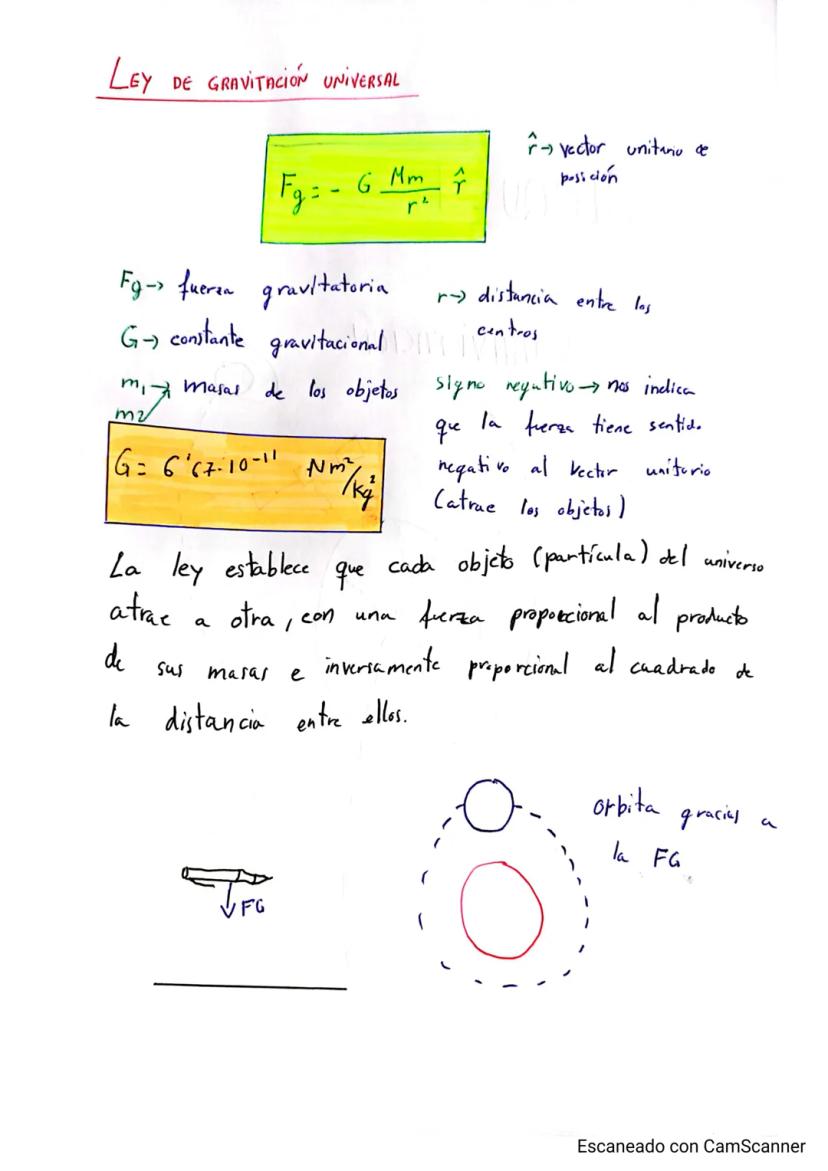 LEY DE GRAVITACIÓN UNIVERSAL
Fg = - G Mm/r² r̂
r̂ → vector unitario de
posición
Fg → fuerza gravitatoria
G → constante gravitacional
m₁ → masas de los objetos
m2
r → distancia entre los
centros
signo negativo → nos indica
que la fuerza tiene sentido
negativo al vector unitario
(atrae los objetos)
G = 6'67·10⁻¹¹ Nm²/kg²
La ley establece que cada objeto (partícula) del universo
atrae a otra, con una fuerza proporcional al producto
de sus masas e inversamente proporcional al cuadrado de
la distancia entre ellos.
orbita gracias a
la FG
FG
Escaneado con CamScanner